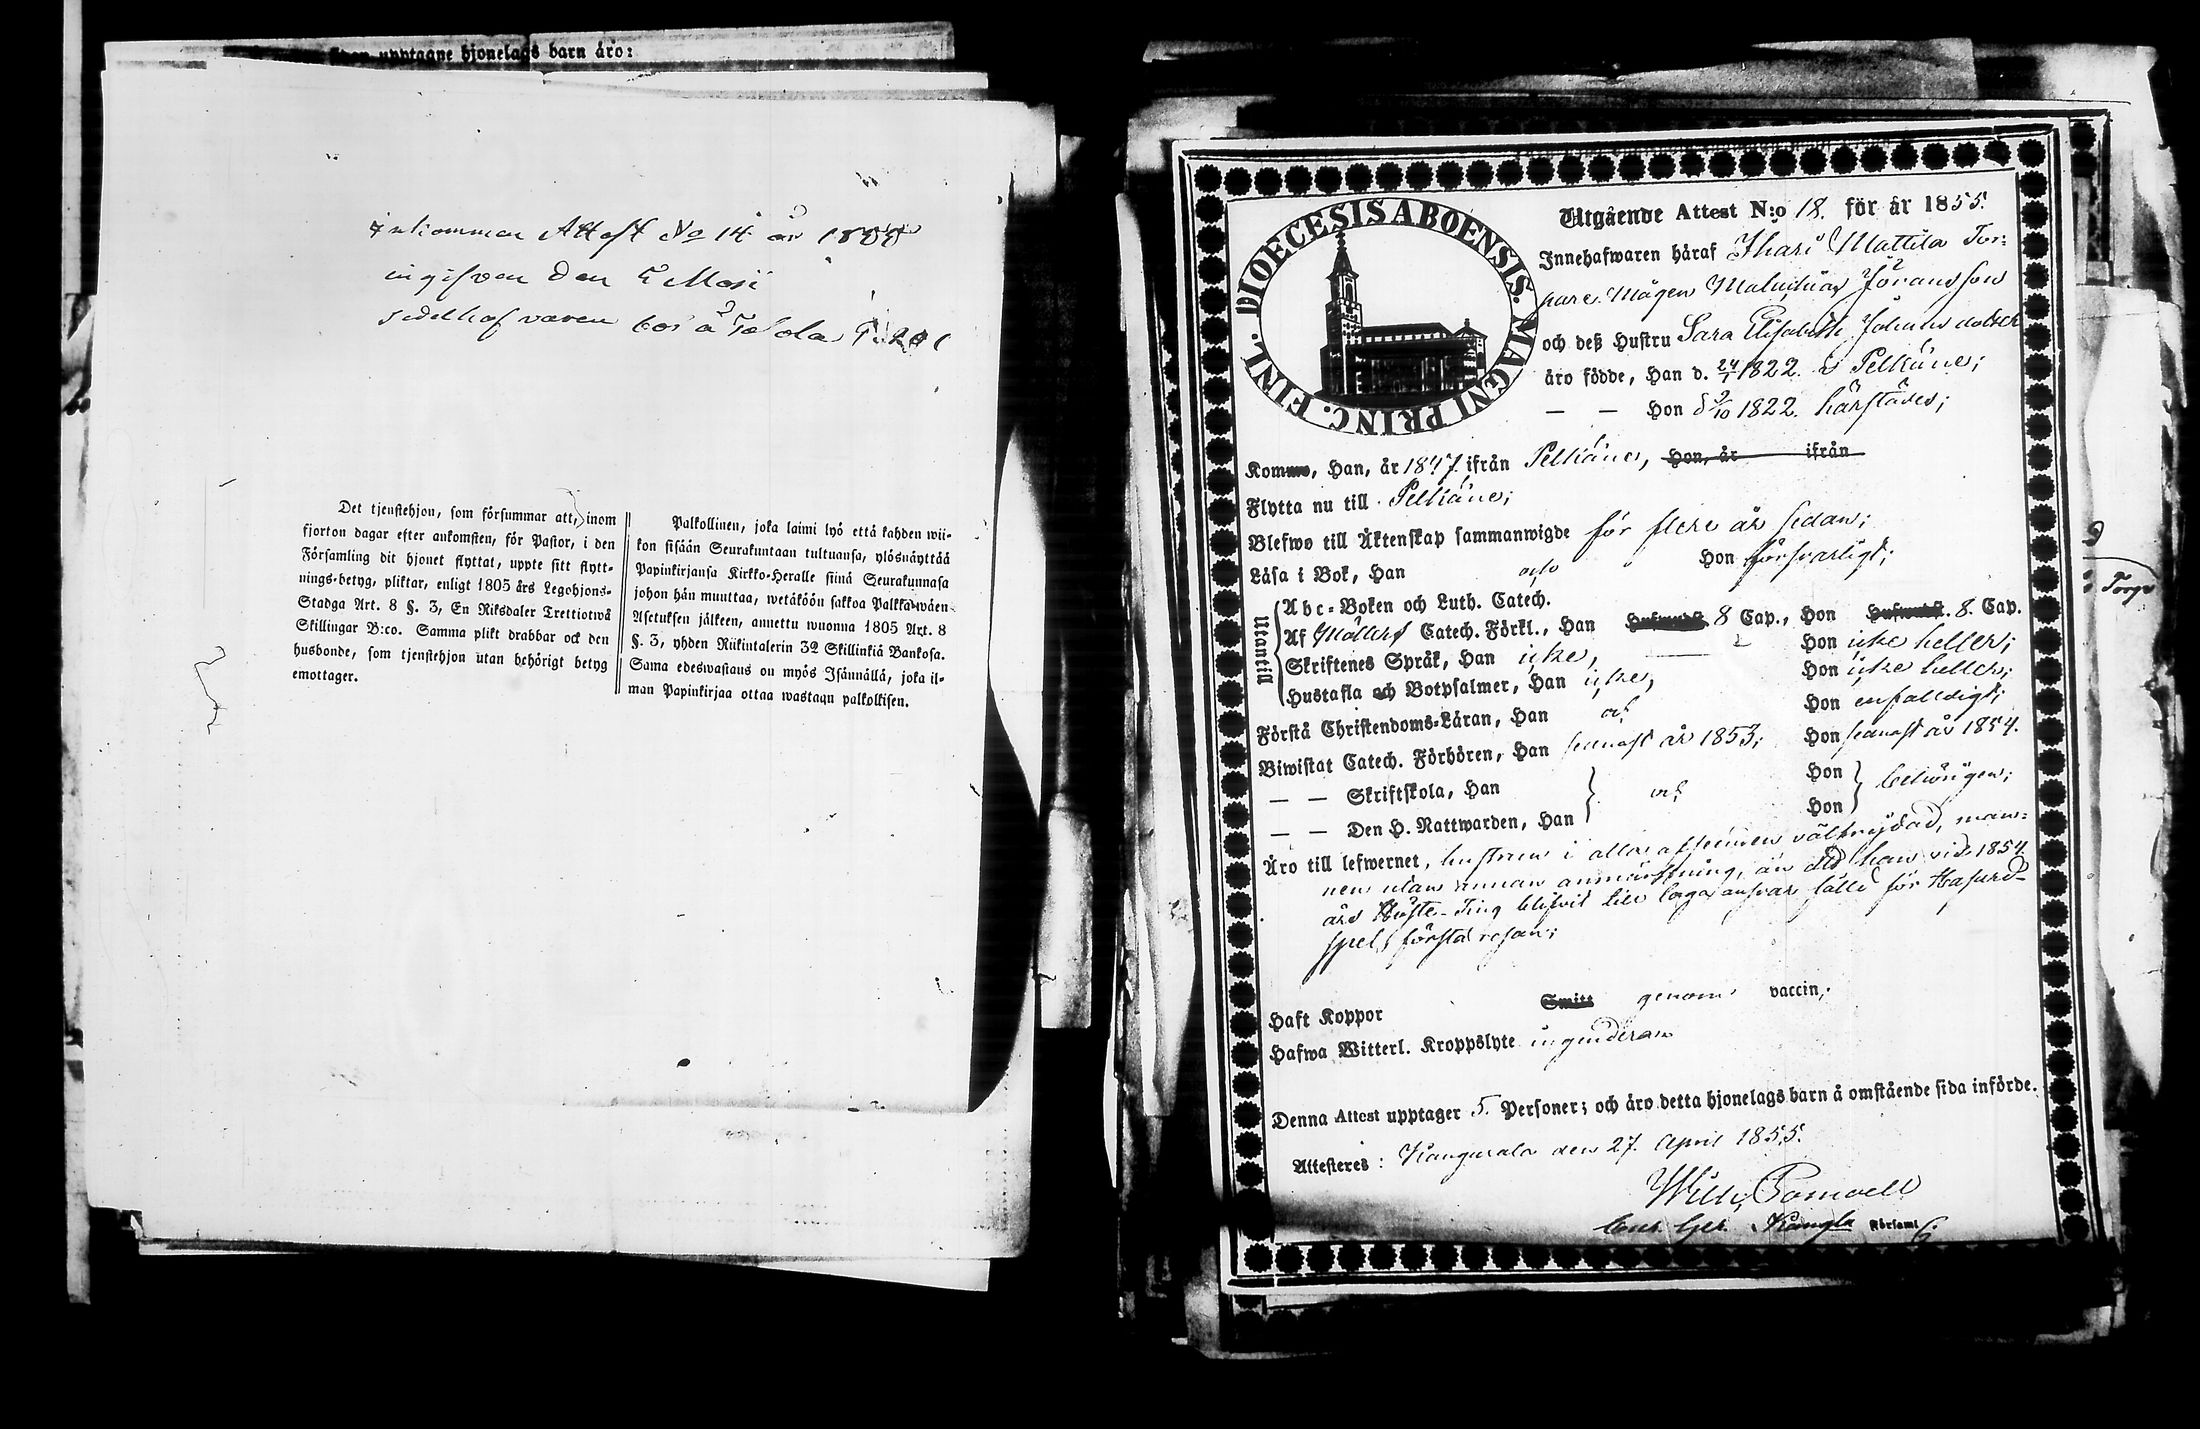 upptagne hjonelags barn äro:
Inkommen Attest No 14 år 1855
ingifven den 6 Maji
sedelhafvaren bor å
Det tjenstehjon, som försummar att, inom
fjorton dagar efter ankomsten, för Pastor, i den
Församling dit hjonet flyttat, uppte sitt flytt-
nings-betyg, pliktar, enligt 1805 års Legohjons-
Stadga Art. 8 §. 3, En Riksdaler Trettiotwå
Skillingar B:co. Samma plikt drabbar ock den
husbonde, som tjenstehjon utan behörigt betyg
emottager.
Palkollinen, joka laimi lyö että kahden wii-
kon sisään Seurakuntaan tultuansa, ylösnäyttää
Papinkirjansa Kirkko-Heralle siinä Seurakunnasa
johon hän muuttaa, wetäköön sakkoa Palkkawäen
Asetuksen jälkeen, annettu wuonna 1805 Art. 8
§. 3, yhden Riikintalerin 32 Skillinkiä Bankosa.
Sama edeswastaus on myös Isännällä, joka il-
man Papinkirjaa ottaa wastaan palkollisen.
DIOECESIS ABOENSIS. MAGNI PRINC. FINL.
Utgående Attest N:o 18. för år 1855.
Innehafwaren häraf Ihari Mattila Tor-
pare Mågen Malachias Jöransson
och deß Hustru Sara Elisabeth Johansdotter
äro födde, Han d. 24/1 1822 i Pelkäne;
— — Hon d 9/10 1822. härstädes;
Kommo, Han, år 1847 ifrån Pelkäne, Hon, år ifrån
Flytta nu till Pelkäne;
Blefwo till Äktenskap sammanwigde för flere år sedan;
Läsa i Bok, Han och Hon försvarligt;
Utantill
Abc-Boken och Luth. Catech.
Af Möllers Catech. Förkl., Han 8 Cap., Hon 8. Cap.
Skriftenes Språk, Han icke, Hon icke heller;
Hustafla och Botpsalmer, Han icke, Hon icke heller;
Förstå Christendoms-Läran, Han och Hon enfalldigt;
Biwistat Catech. Förhören, Han senast år 1853; Hon senast år 1854.
— — Skriftskola, Han och Hon behörigen;
— — Den H. Nattwarden, Han Hon
Äro till lefwernet, hustrun i allo afseenden välfrejdad, man-
nen utan annan anmärkning, än att han vid 1854
års Höste-Ting blifvit till laga ansvar fälld för Hasard-
spel första resan;
Haft Koppor Smitt genom vaccin;
Hafwa Witterl. Kroppslyte ingendera
Denna Attest upptager 5. Personer; och äro detta hjonelags barn å omstående sida införde.
Attesteras: Kangasala den 27. April 1855.
Församl
Torp